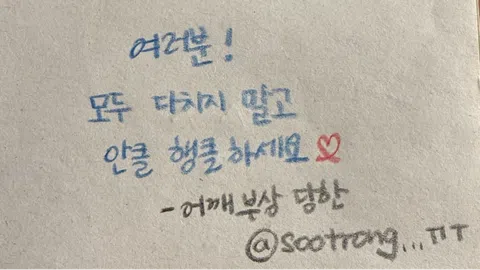 여러분!
모두 다치지 말고
안클 행클하세요♡
-어깨부상 당한
@sootrong...ㅠㅠ